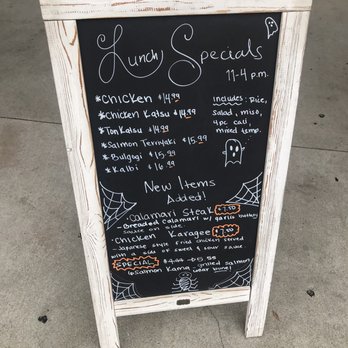 Lunch Specials
11-4 p.m.
*Chicken $14.99
*Chicken Katsu $14.99
*TonKatsu $14.99
*Salmon Terriyaki $15.99
*Bulgogi $15.99
*Kalbi $16.99
includes: rice,
salad, miso,
4pc cali,
mixed temp.
New Items
Added!
•Calamari Steak $7.50
-Breaded calamari w/ garlic buttery
sauce on side.
•Chicken Karagee $7.50
-Japanese style fried chicken served
with a side of sweet & sour sauce
SPECIAL
Salmon Kama grilled salmon
collar bone!